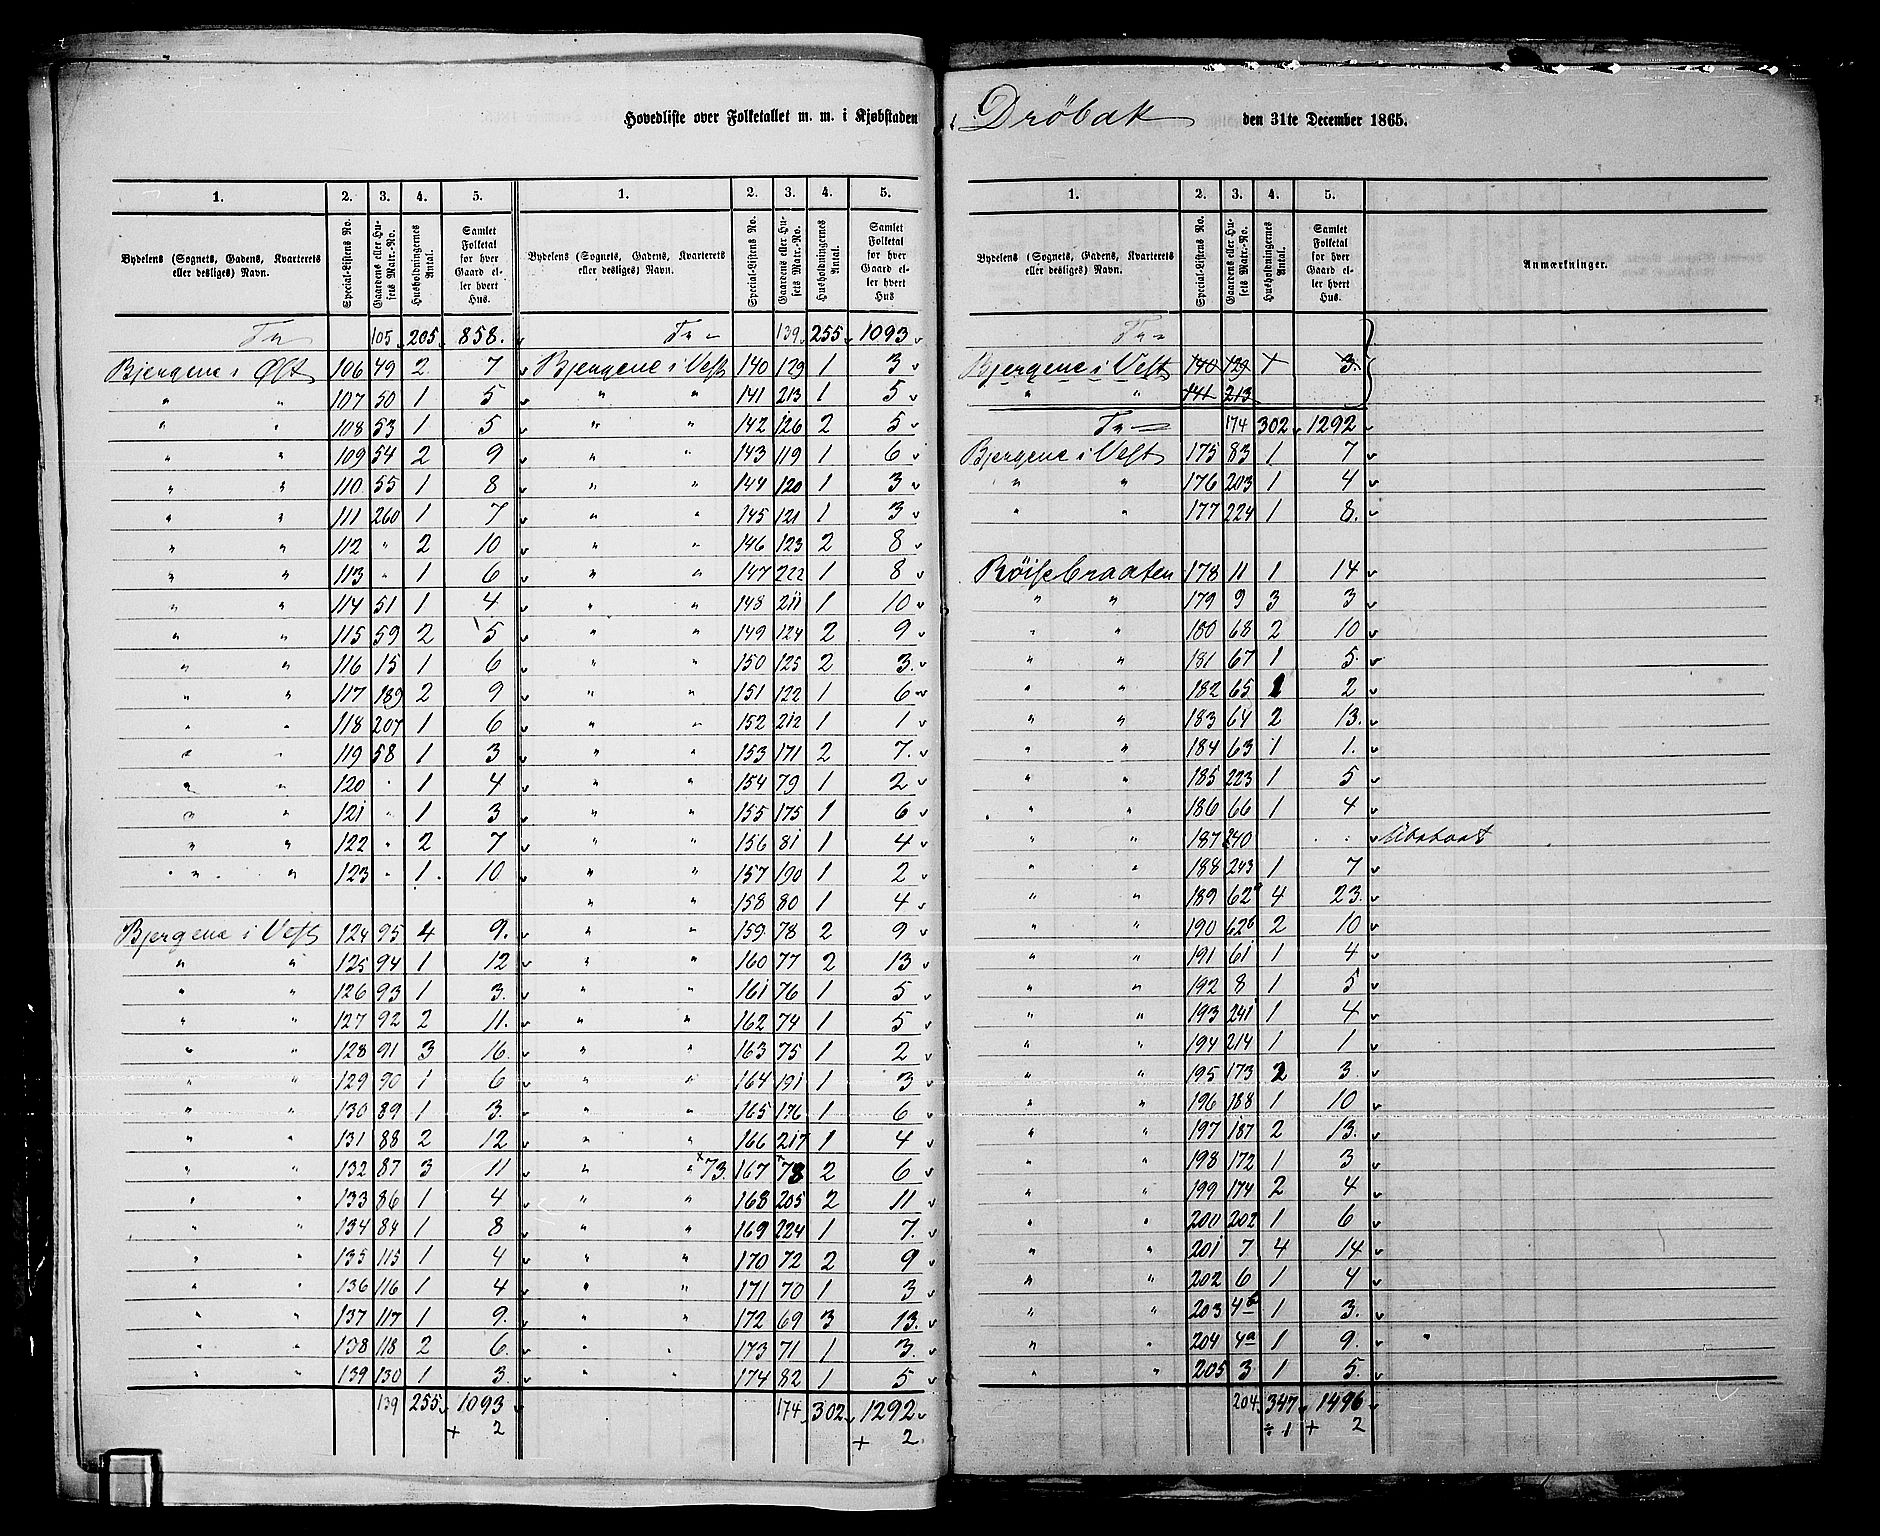 Hovedliste over Folketallet m. m. i Kjøbstaden Dröbak den 31te December 1865.
1. 2. 3. 4. 5. 1. 2. 3. 4. 5.
Bydelens (Sognets, Gadens, Kvarterets eller desliges) Navn. Special-Listens No. Gaardens eller Husets Matr.-No. Husholdningernes Antal. Samlet Folketal for hver Gaard eller hvert Hus. Bydelens (Sognets, Gadens, Kvarterets eller desliges) Navn. Special-Listens No. Gaardens eller Husets Matr.-No. Husholdningernes Antal. Samlet Folketal for hver Gaard eller hvert Hus
Tr 105 205 858. Tr 139 255 1093
Bjergene i Øst 106 49 2 7 Bjergene i Vest 140 129 1 3
" " 107 50 1 5 " " 141 213 1 5
" " 108 53 1 5 " " 142 126 2 5
" " 109 54 2 9 " " 143 119 1 6
" " 110 55 1 8 " " 144 120 1 3
" " 111 260 1 7 " " 145 121 1 3
" " 112 " 2 10 " " 146 123 2 8
" " 113 " 1 6 " " 147 222 1 8
" " 114 51 1 4 " " 148 211 1 10
" " 115 59 2 5 " " 149 124 2 9
" " 116 15 1 6 " " 150 125 2 3.
" " 117 189 2 9 " " 151 122 1 6
" " 118 207 1 6 " " 152 212 1 1
" " 119 58 1 3 " " 153 171 2 7.
" " 120 " 1 4 " " 154 79 1 2
" " 121 " 1 3 " " 155 175 1 6
" " 122 " 2 7 " " 156 81 1 4
" " 123 " 1 10 " " 157 190 1 2
" " 158 80 1 4
Bjergene i Vest 124 95 4 9. " " 159 78 2 9
" " 125 94 1 12 " " 160 77 2 13
" " 126 93 1 3. " " 161 76 1 5
" " 127 92 2 11. " " 162 74 1 5
" " 128 91 3 16. " " 163 75 1 2
" " 129 90 1 6 " " 164 191 1 3
" " 130 89 1 3. " " 165 176 1 6
" " 131 88 2 12 " " 166 217 1 4
" " 132 87 3 11 " " x 73. 167 x 78 2 6
" " 133 86 1 4 " " 168 205 2 11
" " 134 84 1 8 " " 169 224 1 7.
" " 135 115 1 4 " " 170 72 2 9
" " 136 116 1 4 " " 171 70 1 3
" " 137 117 1 9. " " 172 69 3 13.
" " 138 118 2 6. " " 173 71 1 3.
" " 139 130 1 3. " " 174 82 1 5
139 255 1093 174 302 1292
+ 2 + 2.
1. 2. 3. 4. 5.
Bydelens (Sognets, Gadens, Kvarterets eller desliges) Navn. Special-Listens No. Gaardens eller Husets Matr.-No. Husholdningernes Antal. Samlet Folketal for hver Gaard eller hvert Hus. Anmærkninger.
Tr
Bjergene i Vest 140 129 1 3.
" " 141 213
Tr 174 302 1292
Bjergene i Vest 175 83 1 7
" " 176 203 1 4
" " 177 224 1 8.
Röisebraaten 178 11 1 14
" " 179 9 3 3
" " 180 68 2 10
" " 181 67 1 5.
" " 182 65 1 2
" " 183 64 2 13.
" " 184 63 1 1.
" " 185 223 1 5
" " 186 66 1 4
" " 187 240
" " 188 243 1 7
" " 189 62a 4 23.
" " 190 62b 2 10
" " 191 61 1 4
" " 192 8 1 5
" " 193 241 1 4
" " 194 214 1 1
" " 195 173 2 3.
" " 196 188 1 10
" " 197 187 2 13.
" " 198 172 1 3
" " 199 174 2 4
" " 200 202 1 6
" " 201 7 4 14
" " 202 6 1 4
" " 203 4b 1 3.
" " 204 4a 1 9.
" " 205 3 1 5.
204 347 1496
÷ 1 + 2